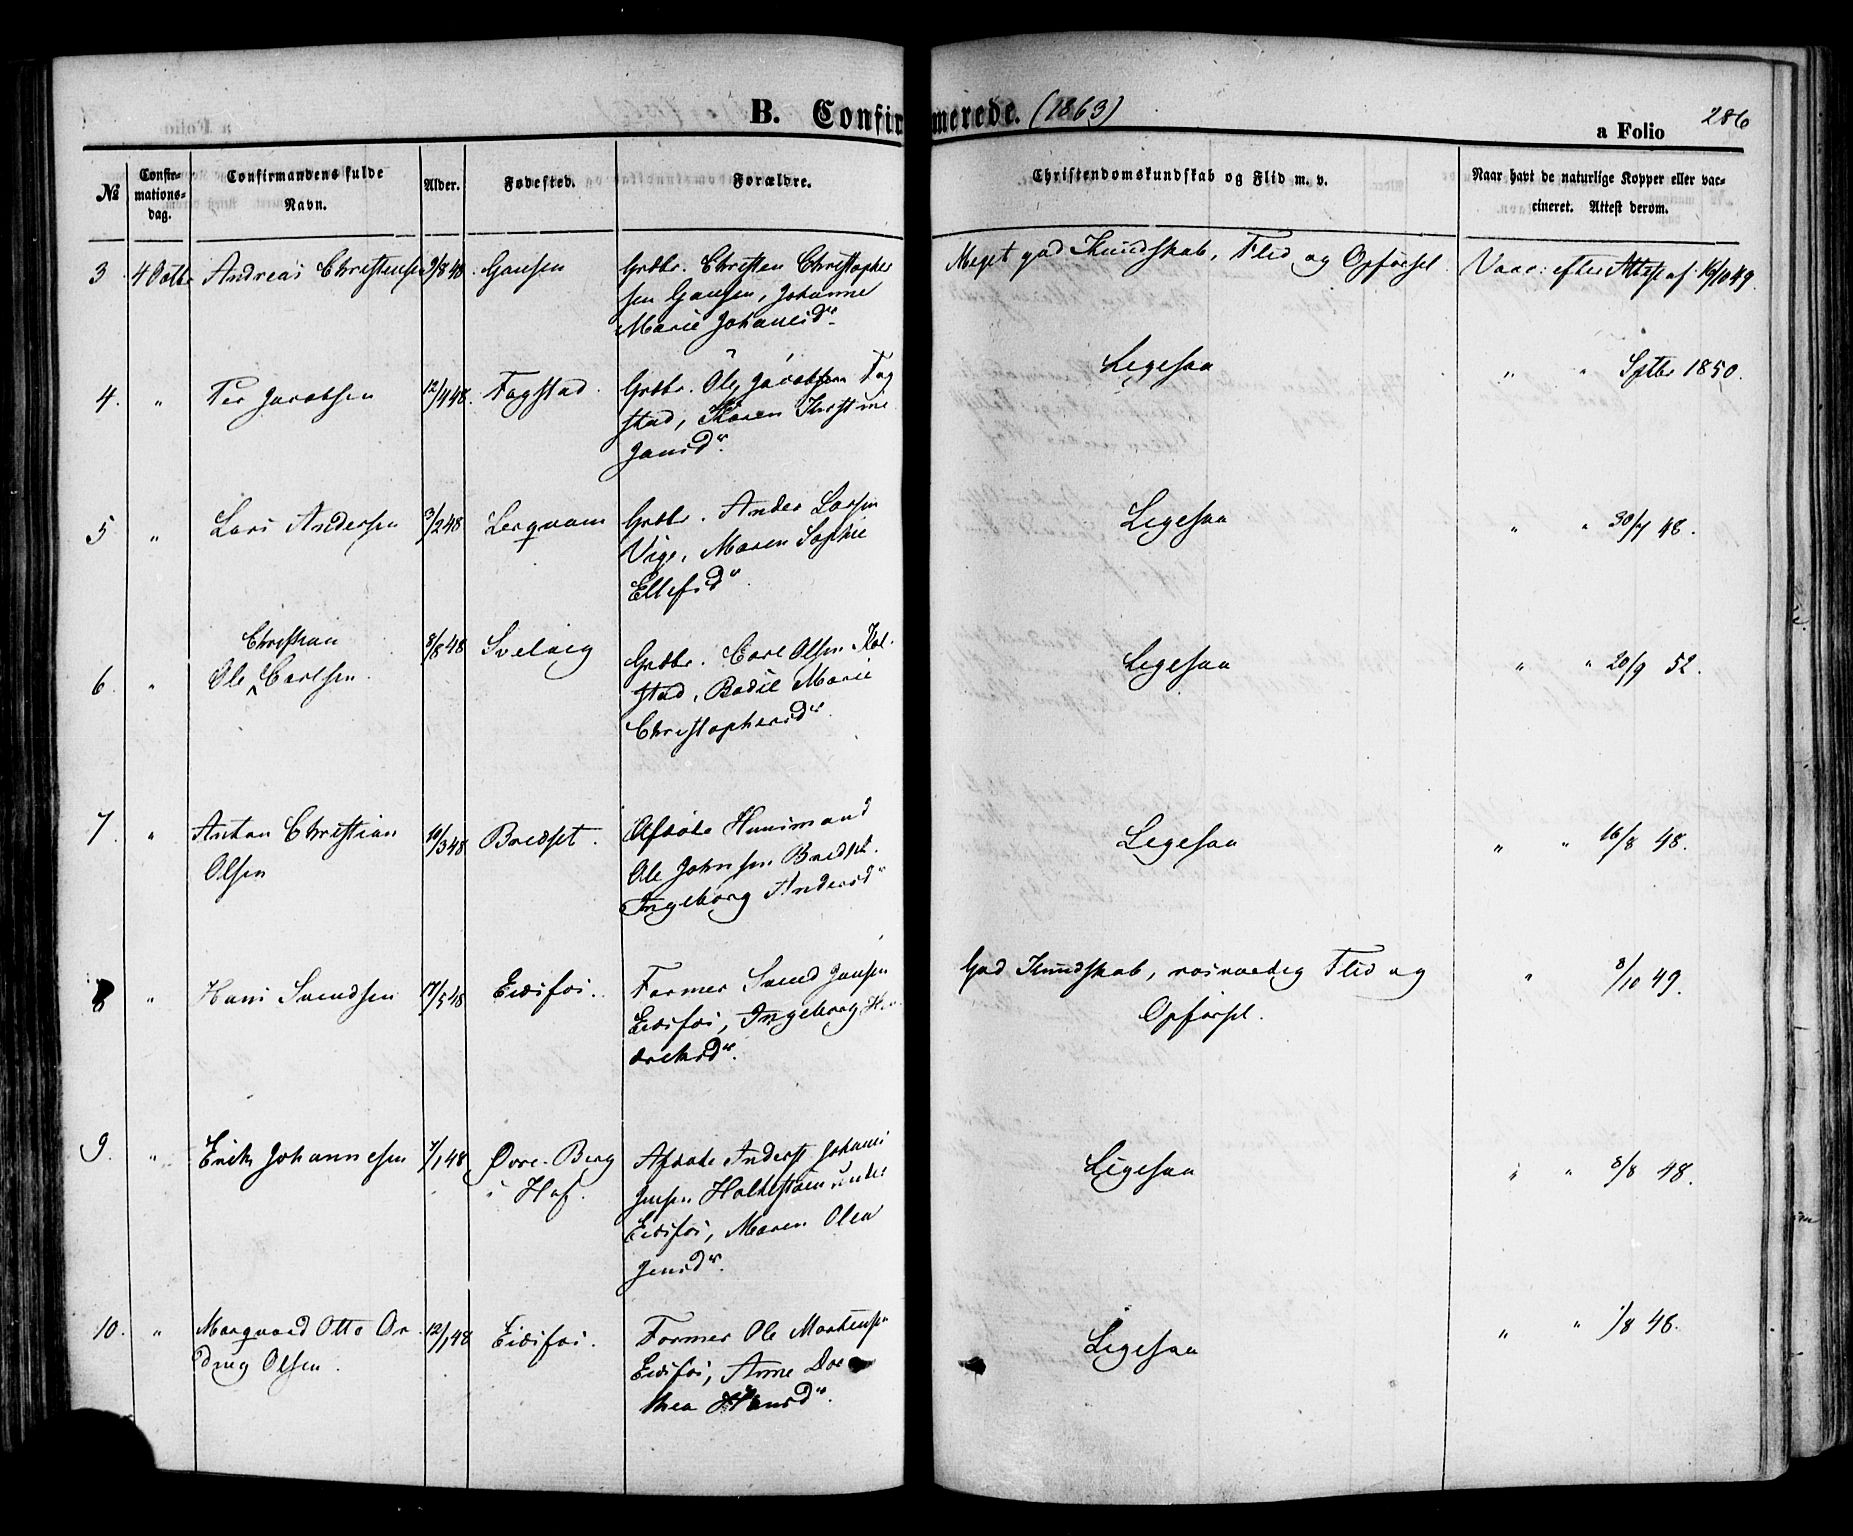 B. Confirmerede. (1863)
a Folio 286
№ Confirmationsdag. Confirmandens fulde Navn. Alder. Fødested. Forældre. Christendomskundskab og Flid m. v. Naar havt de naturlige Kopper eller vaccineret. Attest derom.
3 4 Octbr Andreas Christensen 9/8 48 Gausen Grdbr. Christen Christopher Meget god Kundskab, Flid og Opførsel. Vacc: efter Attest af 16/10 49.
sen Gausen, Johanne
Marie Johansdr.
4. " Per Jacobsen 12/4 48. Fagstad. Grdbr. Ole Jacobsen Fag Ligesaa " " Septbr 1850.
stad, Karen Kirstine
Jansdr.
5 " Lars Andersen 3/2 48 Lerqvam Grdbr. Anders Larsen Ligesaa " " 30/7 48.
Vige, Maren Sophie
Ellefsdr
Christian
6. " Ole ^ Carlsen. 8/8 48 Svelvig Grdbr. Carl Olsen Kol Ligesaa " " 20/9 52.
stad, Bodil Marie
Christophersdr.
7. " Anton Christian 10/3 48 Bredset. Afdøde Huusmand Ligesaa " " 16/8 48.
Olsen Ole Johnsen Bredset.
Ingeborg Andersdr
8 " Hans Svendsen 17/5 48 Eidsfos. Former Svend Jansen God Kundskab, rosværdig Flid og " 8/10 49.
Eidsfos, Ingeborg Opførsel.
9. " Erik Johannesen 7/1 48 Øvre-Berg Afdøde Johannes Ligesaa " " 8/8 48.
i Hof. Jensen under
Eidsfos, Maren Olea
Jensdr.
10. " Marqvard Otto Or 12/1 48 Eidsfos. Former Ole Mortensen Ligesaa " " 1/8 48.
ding Olsen. Eidsfos, Anne Doro
thea Hansdr.